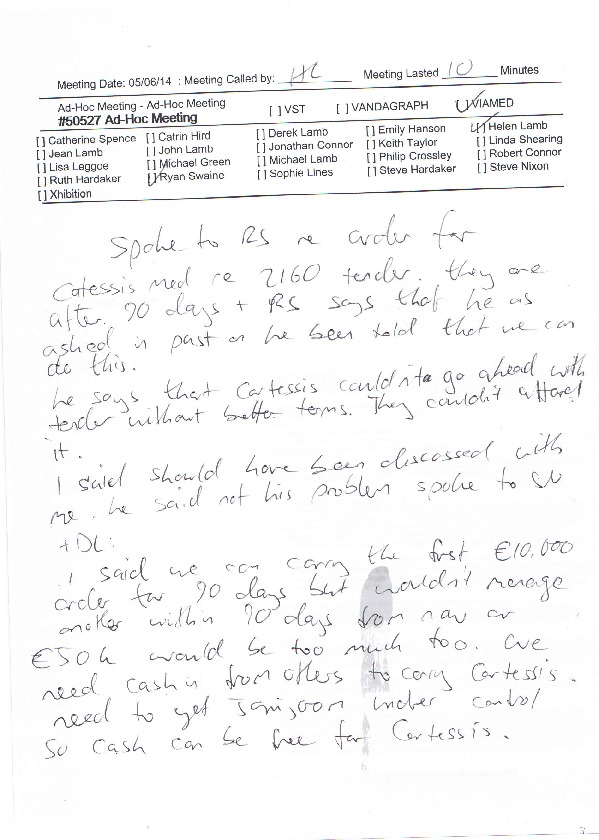 Meeting Date: 05/06/14 : Meeting Called by: HL Meeting Lasted 10 Minutes
Ad-Hoc Meeting - Ad-Hoc Meeting
#50527 Ad-Hoc Meeting
[ ] VST [ ] VANDAGRAPH [✓] VIAMED
[ ] Catherine Spence [ ] Catrin Hird [ ] Derek Lamb [ ] Emily Hanson [✓] Helen Lamb
[ ] Jean Lamb [ ] John Lamb [ ] Jonathan Connor [ ] Keith Taylor [ ] Linda Shearing
[ ] Lisa Leggoe [ ] Michael Green [ ] Michael Lamb [ ] Philip Crossley [ ] Robert Connor
[ ] Ruth Hardaker [✓] Ryan Swaine [ ] Sophie Lines [ ] Steve Hardaker [ ] Steve Nixon
[ ] Xhibition
Spoke to RS re order for
Catessis Med re 2160 tender. they are
after 90 days + RS says that he as
asked in past on he been told that we can
do this.
he says that Cartessis couldn't go ahead with
tender without better terms. They couldn't afford
it.
I said should have been discussed with
me. he said not his problem spoke to SN
+ DL.
I said we can carry the first €10,000
order for 90 days but wouldn't manage
another within 90 days from now or
€50k would be too much too. we
need cash in from others to carry Cartessis.
need to get under control
So cash can be free for Cartessis.